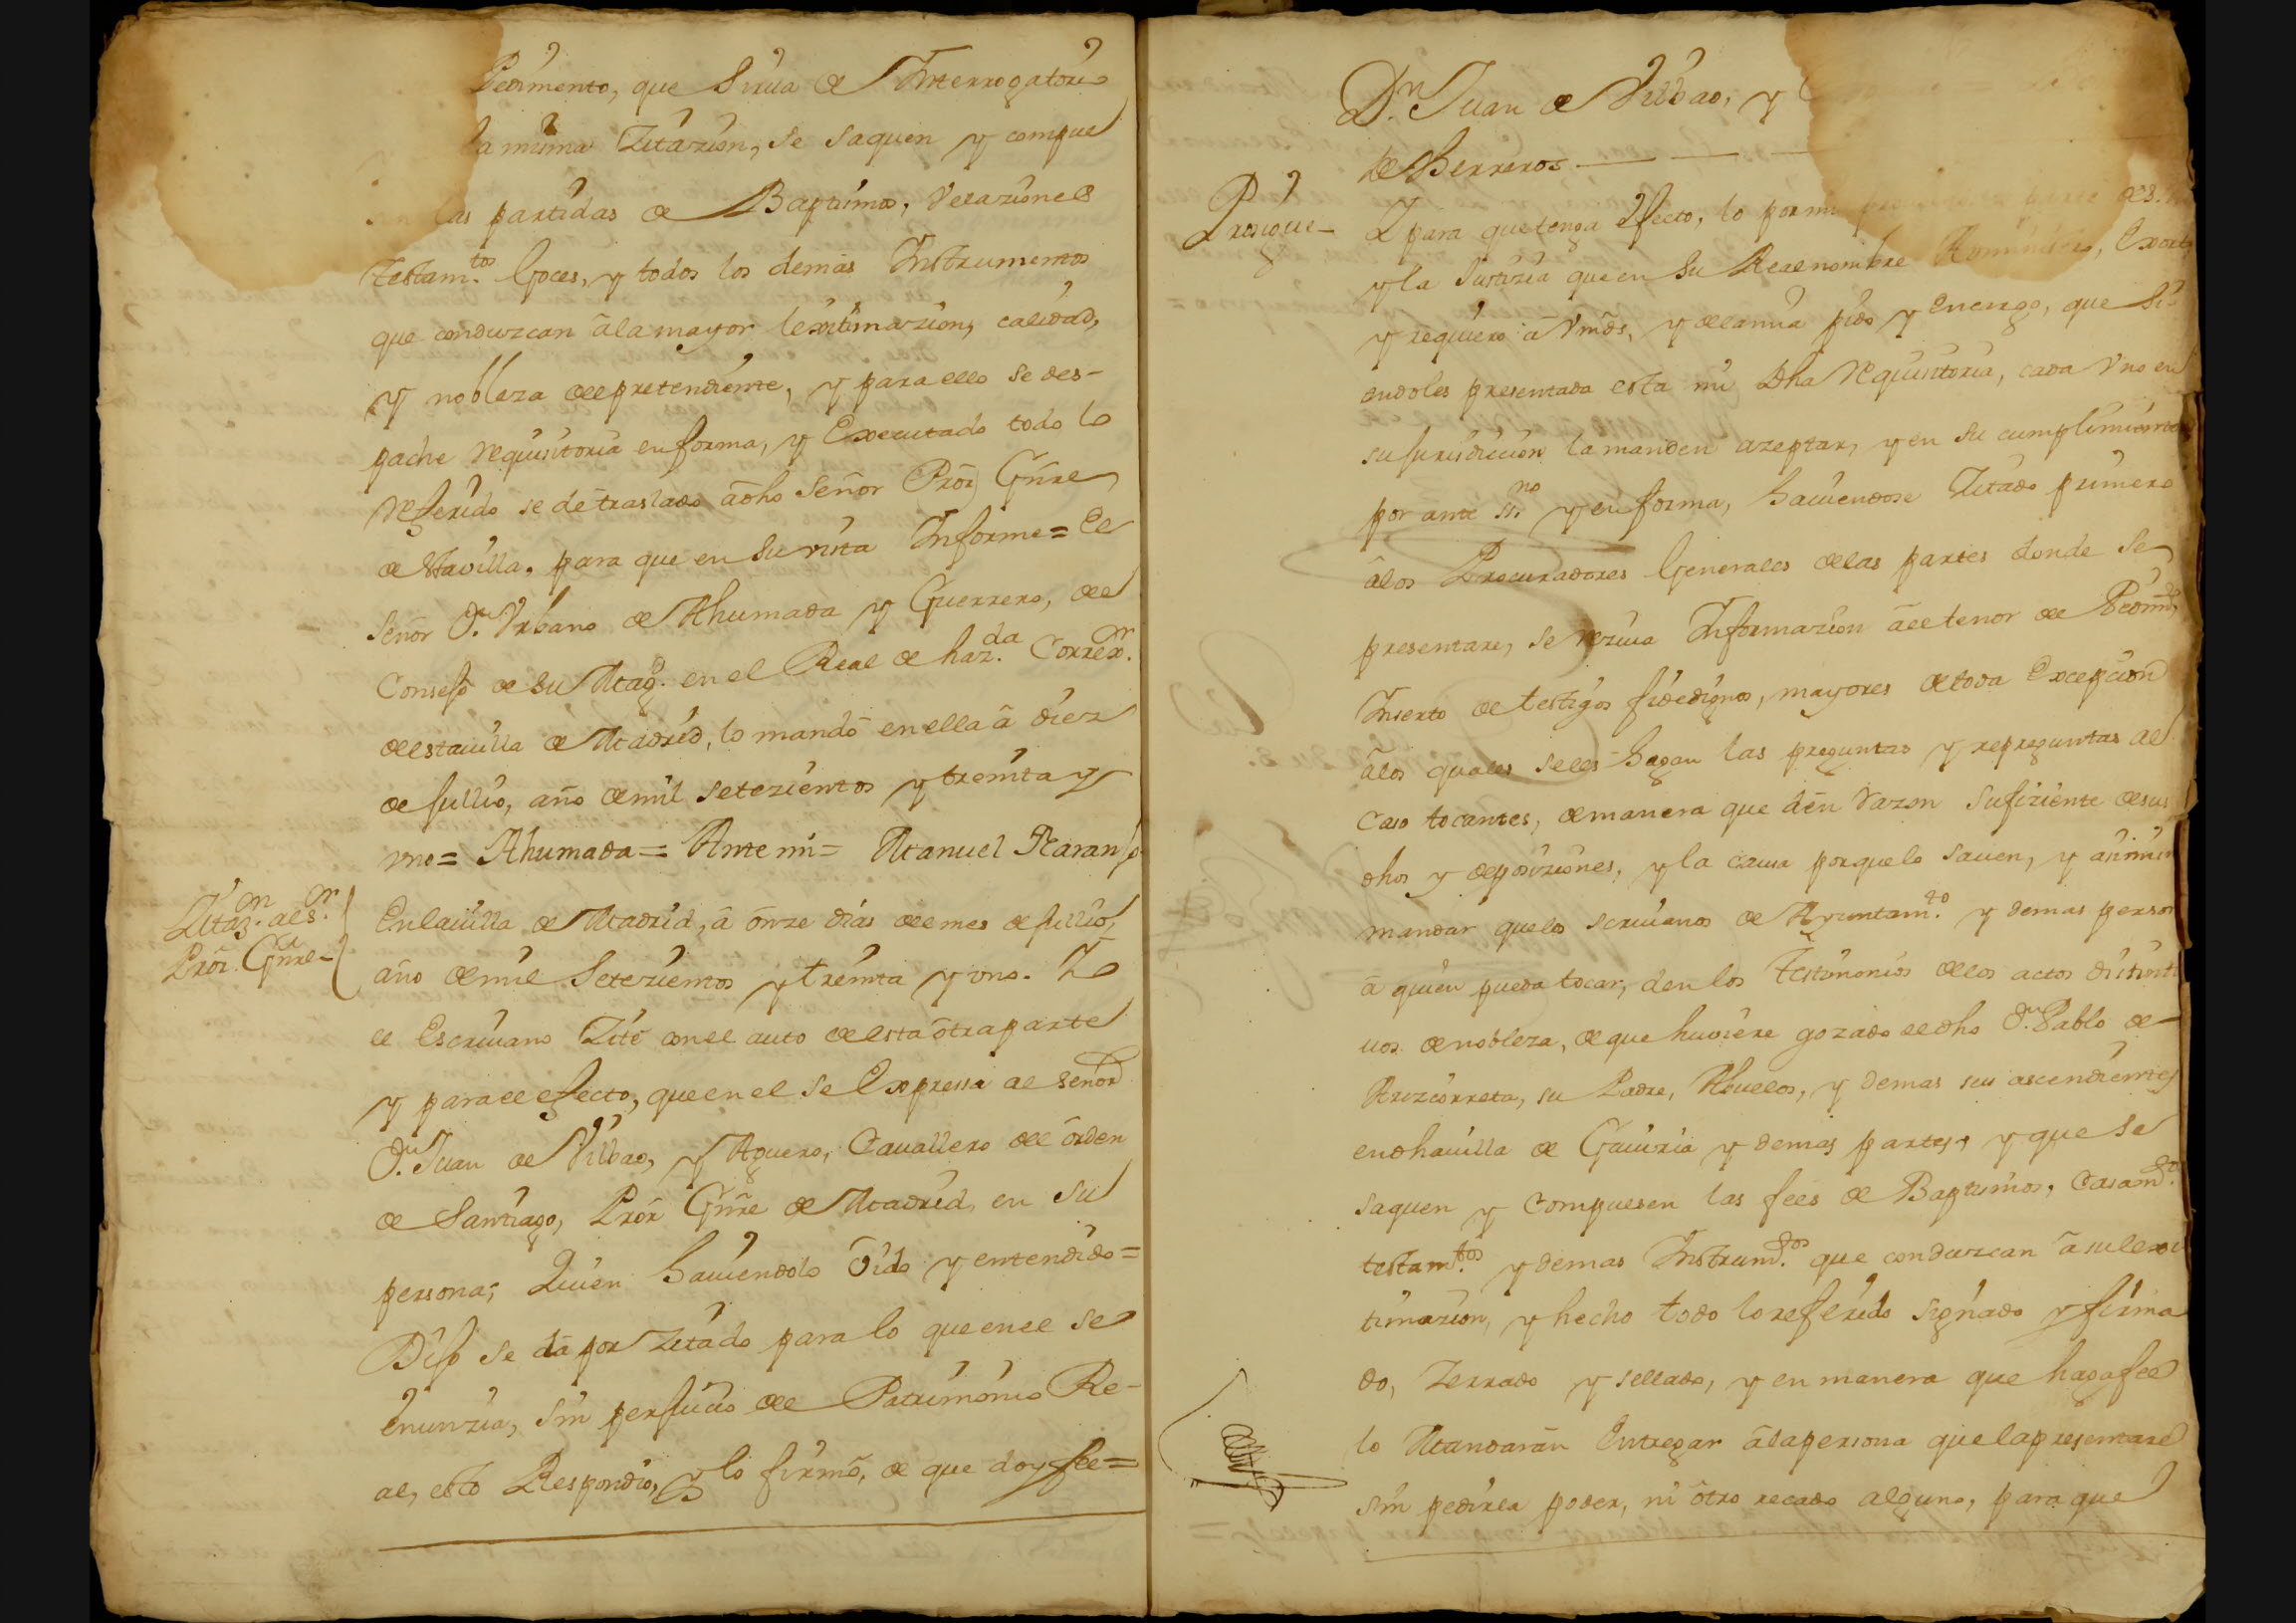 Pedimento, que Sirua de Interrogatorio
la misma Zitazion, se saquen y compul
las partidas de Baptismos, Velaziones
Testam.tos Goces, y todos los demas Instrumentos
que conduzcan â la mayor lexitimazion, calidad,
y nobleza del pretendiente, y para ello se des-
pache requisitoria en forma, y Executado todo lo
referido se dé traslado â dho señor Prõr Gñral
de esta villa, para que en su vista Informe = El
señor D.n Vrbano de Ahumada y Guerrero, del
Consejo de su Mag.d en el Real de haz.da Correx.or
de esta villa de Madrid, lo mandó en ella â diez
de Jullio, año de mil setezientos y treinta y
vno = Ahumada = Ante mi = Manuel Naranjo
Zitaz.on al s.or
Prõr. Gñral-
En la villa de Madrid, â onze dias del mes de Jullio,
año de mil Setezientos y treinta y vno. Yo
el Escriuano Zité con el auto de esta otra parte
y para el efecto, que en el se Expressa al señor
D.n Juan de Vilbao, y Aguero, Cauallero del orden
de Santiago, Prõr Gñral de Madrid, en su
persona; Quien hauiendolo oido y entendido =
Dijo se dà por Zitado para lo que en el se
enunzia, sin perjuicio del Patrimonio Re-
al, esto Respondio, y lo firmó, de que doy fee =
D.n Juan de Vilbao, y
de Herreros
Prosigue-
Y para que tenga efecto, lo por mi
y la Justizia que en su Real nombre Administro, Exorto
y requiero â Vmds, y de la mia pido y encargo, que Si-
endoles presentada esta mi dha requisitoria, cada vno en
su Jurisdicion la manden azeptar, y en su cumplimiento
por ante ss.no y en forma, hauiendose Zitado primero
â los Procuradores Generales de las partes donde se
presentare, se reziua Informazion âl tenor del Pedim.to
Inserto de testigos fidedignos, mayores de toda Excepcion
â los quales se les hagan las preguntas y repreguntas al
caso tocantes, de manera que den razon sufiziente de sus
dhos y deposiziones, y la causa por que lo sauen, y asimis
mandar que los scriuanos de Ayuntam.to y demas person
â quien pueda tocar, den los Testimonios de los actos distinti
uos de nobleza, de que huviere gozado el dho D.n Pablo de
Arizcorreta, su Padre, Abuelos, y demas sus ascendientes
en dha villa de Gauiria y demas partes, y que se
saquen y compulsen las fees de Baptismos, Casam.tos
testam.tos y demas Instrum.tos que conduzcan â su lexi
timazion, y hecho todo lo referido signado y firma
do, Zerrado y sellado, y en manera que haga fee
lo Mandarân Entregar â la persona que la presentare
sin pedirla poder, ni otro recado alguno, para que